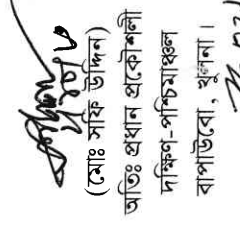 (মোঃ সফি উদ্দিন)
অতিঃ প্রধান প্রকৌশলী
দক্ষিণ-পশ্চিমাঞ্চল
বাপাউবো, খুলনা।